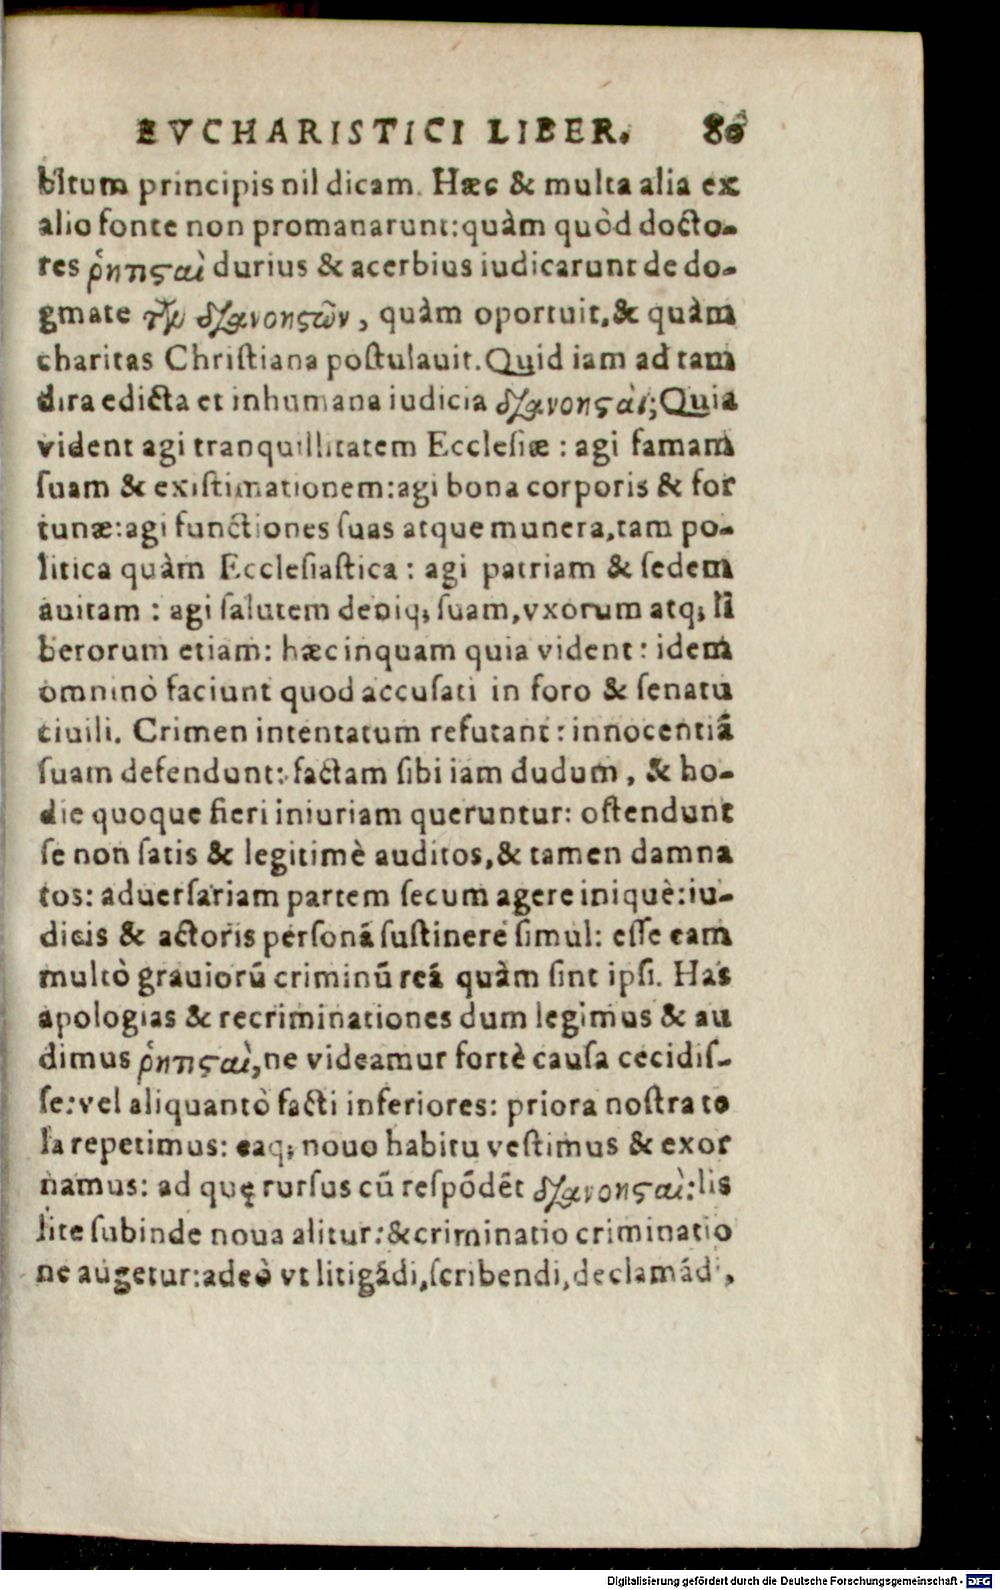 EVCHARISTICI LIBER. 80
bitum principis nil dicam. Hæc & multa alia ex
alio fonte non promanarunt: quàm quòd docto-
res ῥητιϛαὶ durius & acerbius iudicarunt de do-
gmate τῶν διανοηϛῶν, quàm oportuit, & quàm
charitas Christiana postulauit. Quid iam ad tam
dira edicta et inhumana iudicia διανοηϛαὶ; Quia
vident agi tranquillitatem Ecclesiæ : agi famam
suam & existimationem: agi bona corporis & for
tunæ: agi functiones suas atque munera, tam po-
litica quàm Ecclesiastica : agi patriam & sedem
auitam : agi salutem deniq; suam, vxorum atq; li
berorum etiam: hæc inquam quia vident: idem
omninò faciunt quod accusati in foro & senatu
ciuili. Crimen intentatum refutant: innocentiã
suam defendunt: factam sibi iam dudum, & ho-
die quoque fieri iniuriam queruntur: ostendunt
se non satis & legitimè auditos, & tamen damna
tos: aduersariam partem secum agere iniquè: iu-
dicis & actoris personã sustinere simul: esse eam
multò grauiorũ criminũ reã quàm sint ipsi. Has
apologias & recriminationes dum legimus & au
dimus ῥητιϛαὶ, ne videamur fortè causa cecidis-
se: vel aliquantò facti inferiores: priora nostra te
la repetimus: eaq; nouo habitu vestimus & exor
namus: ad quę rursus cũ respõdẽt διανοηϛαὶ: lis
lite subinde noua alitur: & criminatio criminatio
ne augetur: adeò vt litigãdi, scribendi, declamãdi,
Digitalisierung gefördert durch die Deutsche Forschungsgemeinschaft - DFG